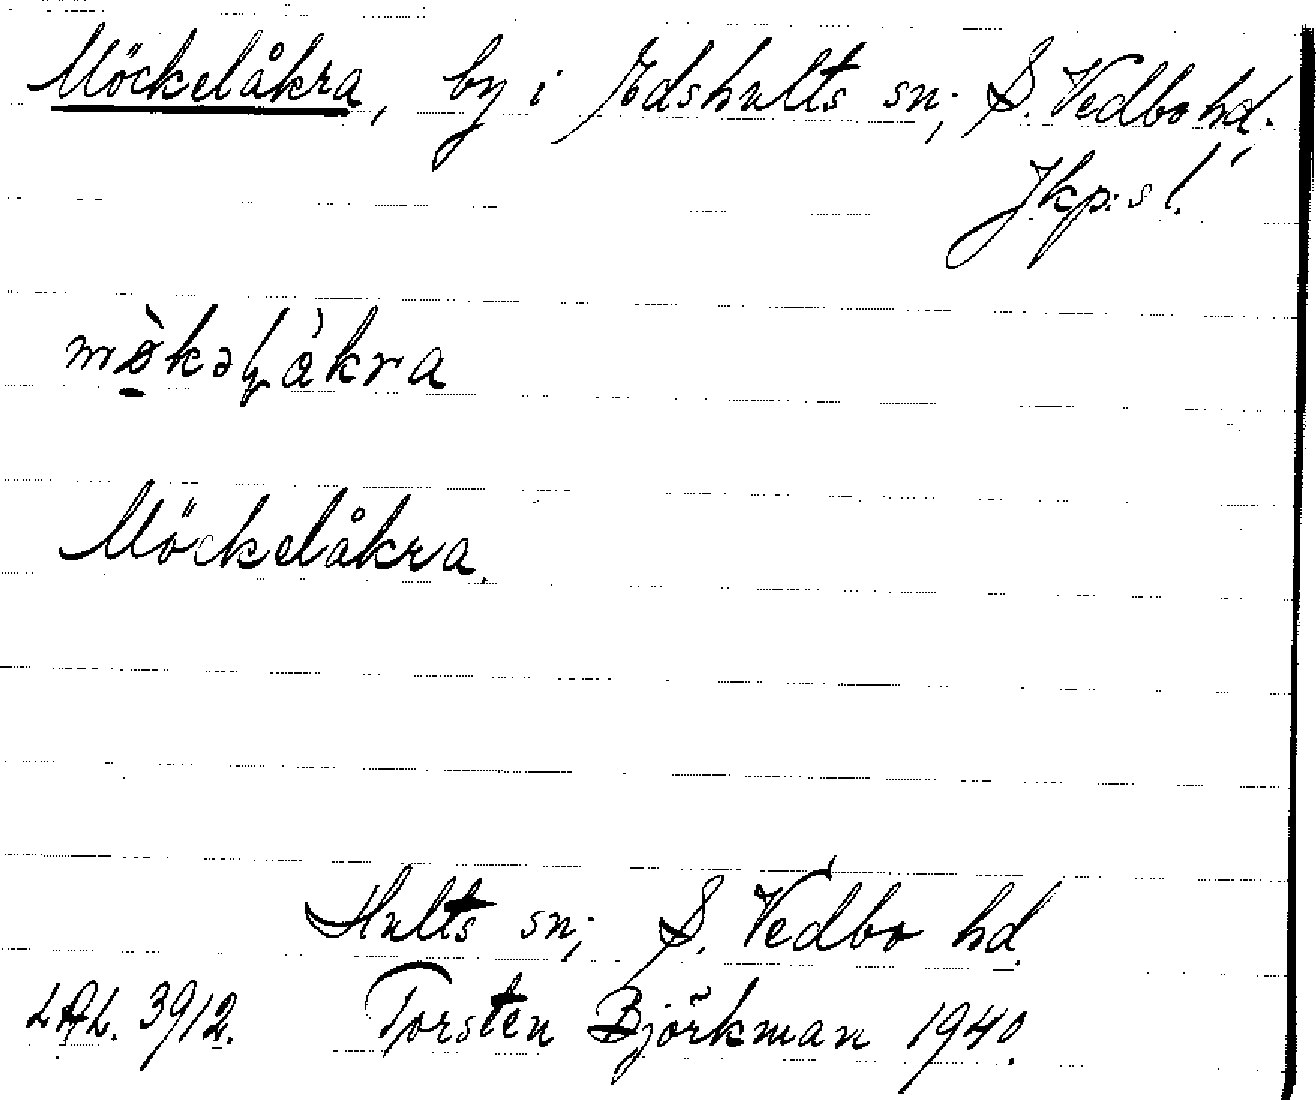 Möckelåkra, by i Edshults sn; S. Vedbo hd.
Jkp:s l.
Möckelåkra.
Hults sn; S. Vedbo hd.
3912. Torsten Björkman 1940.